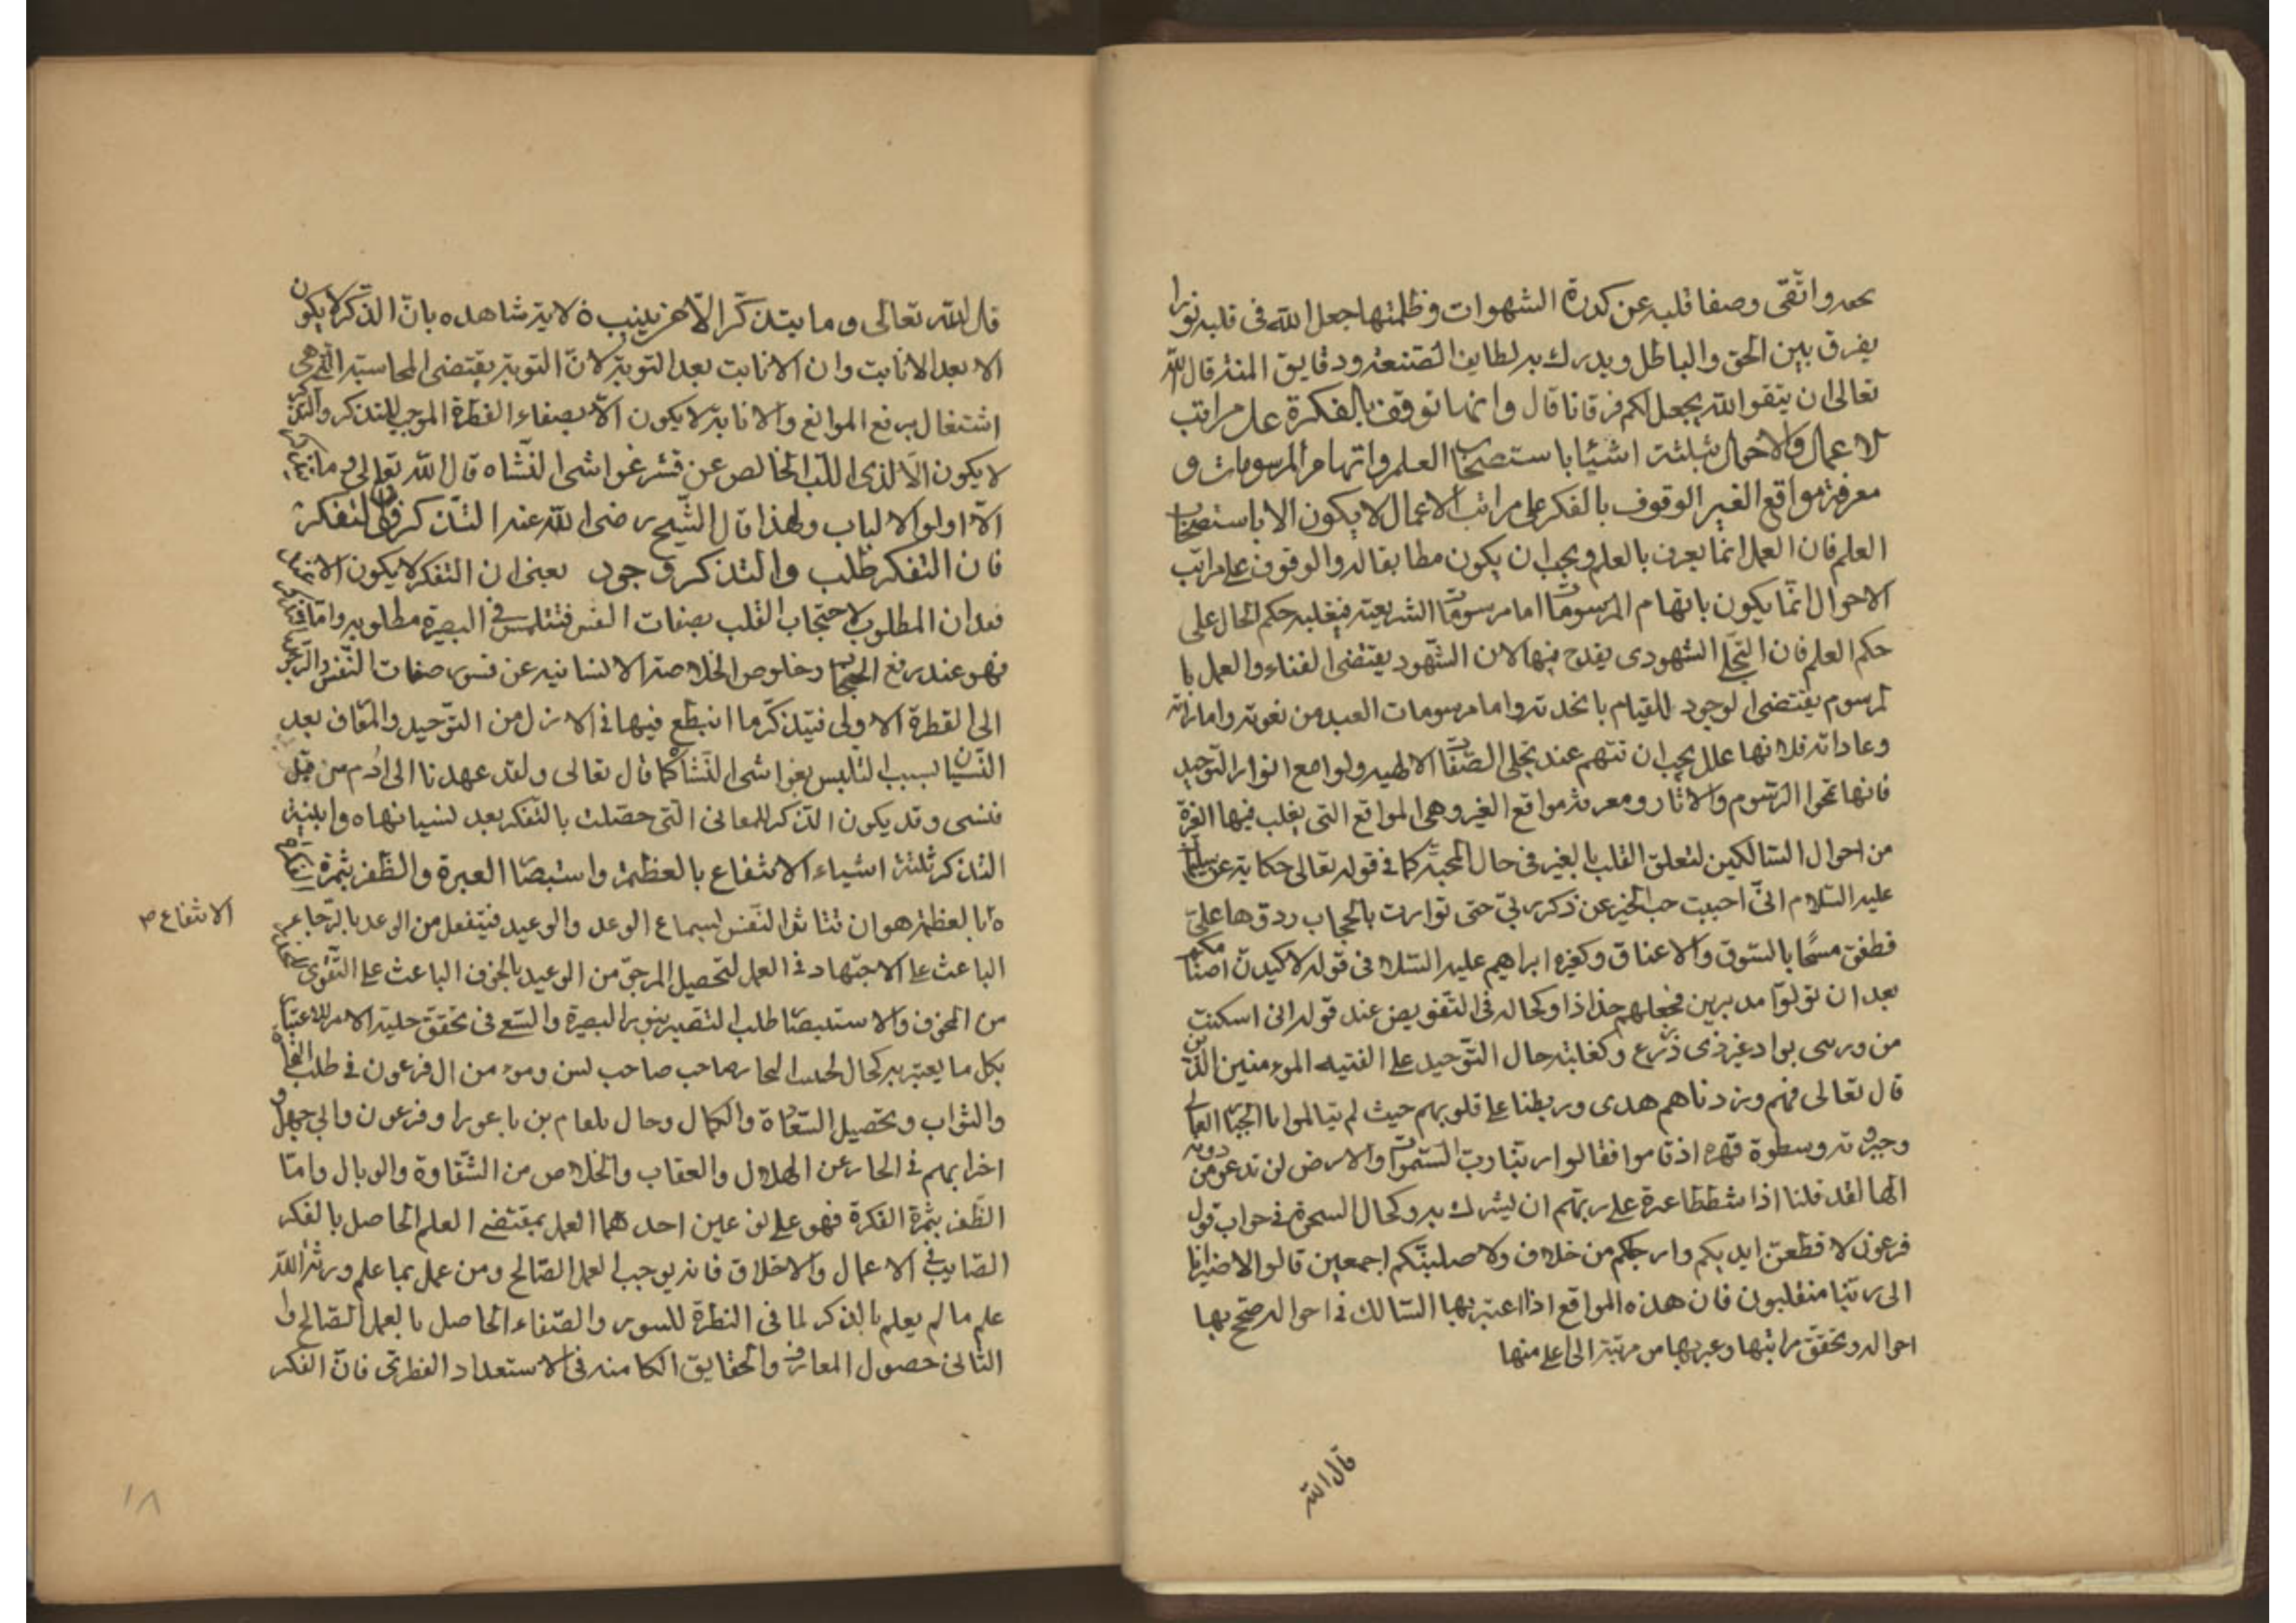 واتقى وصفا قلبه عن كدورة الشهوات وظلمتها جعل الله فى قلبه نورا
يفرق بين الحق والباطل ويدرك به لطايف الصنعة ودقايق المنة قال الله
تعالى ان يتقوا الله يجعل لكم فرقانا قال وانما توقف بالفكرة على مراتب
لاعمال والاحوال بثلثة اشيا باستصحاب العلم واتهام المرسومات و
معرفة مواقع الغير الوقوف بالفكر على مراتب الاعمال لا يكون الا باستصحاب
العلم فان العمل انما يعرف بالعلم ويجب ان يكون مطابقا له والوقوف على مراتب
الاحوال انما يكون باتهام المرسومات اما مرسومات الشريعة فيغلبه حكم الحال على
حكم العلم فان التجلى الشهودى يقدح فيها لان الشهود يقتضى الفناء والعمل با
لمرسوم يقتضى الوجود للقيام بالخدمة واما مرسومات العبد من نعوته واماراته
وعاداته فلانها علل يجب ان تتهم عند تجلى الصفات الالهيه ولوامع انوار التوحيد
فانها تمحوا الرسوم والاثار ومعرفة مواقع الغير وهى المواقع التى يغلب فيها الغيرة
من احوال السالكين لتعلق القلب بالغير فى حال المحبة كما فى قوله تعالى حكاية عن سليمان
عليه السلام انى احببت حب الخير عن ذكر ربى حتى توارت بالحجاب ردوها على
فطفق مسحا بالسوق والاعناق وكغيرة ابراهيم عليه السلا فى قوله لاكيدن اصنامكم
بعد ان تولوا مدبرين فجعلهم جذاذا وكحاله فى التفويض عند قوله انى اسكنت
من ورسى بواد غير ذى زرع وكغلبة حال التوحيد على الفتيه المؤمنين الذين
قال تعالى فيهم وزدناهم هدى وربطنا على قلوبهم حيث لم يبالوا بالجبار
وسطوة قهره اذ قاموا فقالوا ربنا رب السموات والارض لن ندعو من دونه
الها لقد قلنا اذا شططا غيرة على ربهم ان يشرك به وكحال السحرة فى جواب قول
فرعون لاقطعن ايديكم وارجلكم من خلاف ولاصلبنكم اجمعين قالوا لا ضير انا
الى ربنا منقلبون فان هذه المواقع اذا اعتبر بها السالك فى احواله صحح بها
احواله وتحقق مراتبها وعبر بها من مرتبة الى اعلى منها
قال الله
قال الله تعالى وما يتذكر الا من ينيب الاية شاهده بان التذكر لا يكون
الا بعد الانابت وان الانابت بعد التوبة لان التوبة يقتضى المحاسبة التى هى
اشتغال برفع الموانع والانابة لا يكون الا بصفاء الفطرة الموجب للتذكر والتذكر
لا يكون الا لذى اللب الخالص عن قشر غواشى النشاه قال الله تعالى وما يتذكر
الا اولوا الالباب ولهذا قال الشيخ رضى الله عنه التذكر فوق التفكر
فان التفكر طلب والتذكر وجود يعنى ان التفكر لا يكون الا عند
فقدان المطلوب لاحتجاب القلب بصفات النفس فتلتمس البصيرة مطلوبه واما التذكر
فهو عند رفع الحجاب وخلوص الخلاصة الانسانيه عن قسور صفات النفس والرجوع
الى الفطرة الاولى فيتذكر ما انبطع فيها فى الازل من التوحيد والمعارف بعد
النسيان بسبب التلبس بغواشى النشاه كما قال تعالى ولقد عهدنا الى ادم من قبل
فنسى وقد يكون التذكر للمعانى التى حصلت بالتفكر بعد نسيانها ه وابنية
التذكر ثلثة اشياء الانتفاع بالعظة واستبصار العبرة والظفر بثمرة الفكرة
الانتفاع
بالعظة هو ان تتاثر النفس لسماع الوعد والوعيد فينفعل من الوعد بالرجاء
الباعث على الاجتهاد فى العمل لتحصيل المرجو من الوعيد بالخوف الباعث على التقوى
من المخوف والاستبصار طلب التبصير بنور البصيرة والسع فى تحقق حلية الامر للاعتبار
بكل ما يعتبر به كحال صاحب لسن ومومن ال فرعون فى طلب النجاة
والثواب وتحصيل السعادة والكمال وحال بلعام بن باعورا وفرعون وابى جهل و
اضرابهم فى الهلال والعقاب والخلاص من الشقاوة والوبال واما
الظفر بثمرة الفكرة فهو على نوعين احدهما العمل بمقتضى العلم الحاصل بالفكر
الصايب فى الاعمال والاخلاق فانه يوجب العمل الصالح ومن عمل بما علم ورثه الله
علم ما لم يعلم بالتذكر لما فى الفطرة للسور والصفاء الحاصل بالعمل الصالح وا
الثانى حصول المعارف والحقايق الكامنه فى الاستعداد الفطرى فان الفكر
١٨